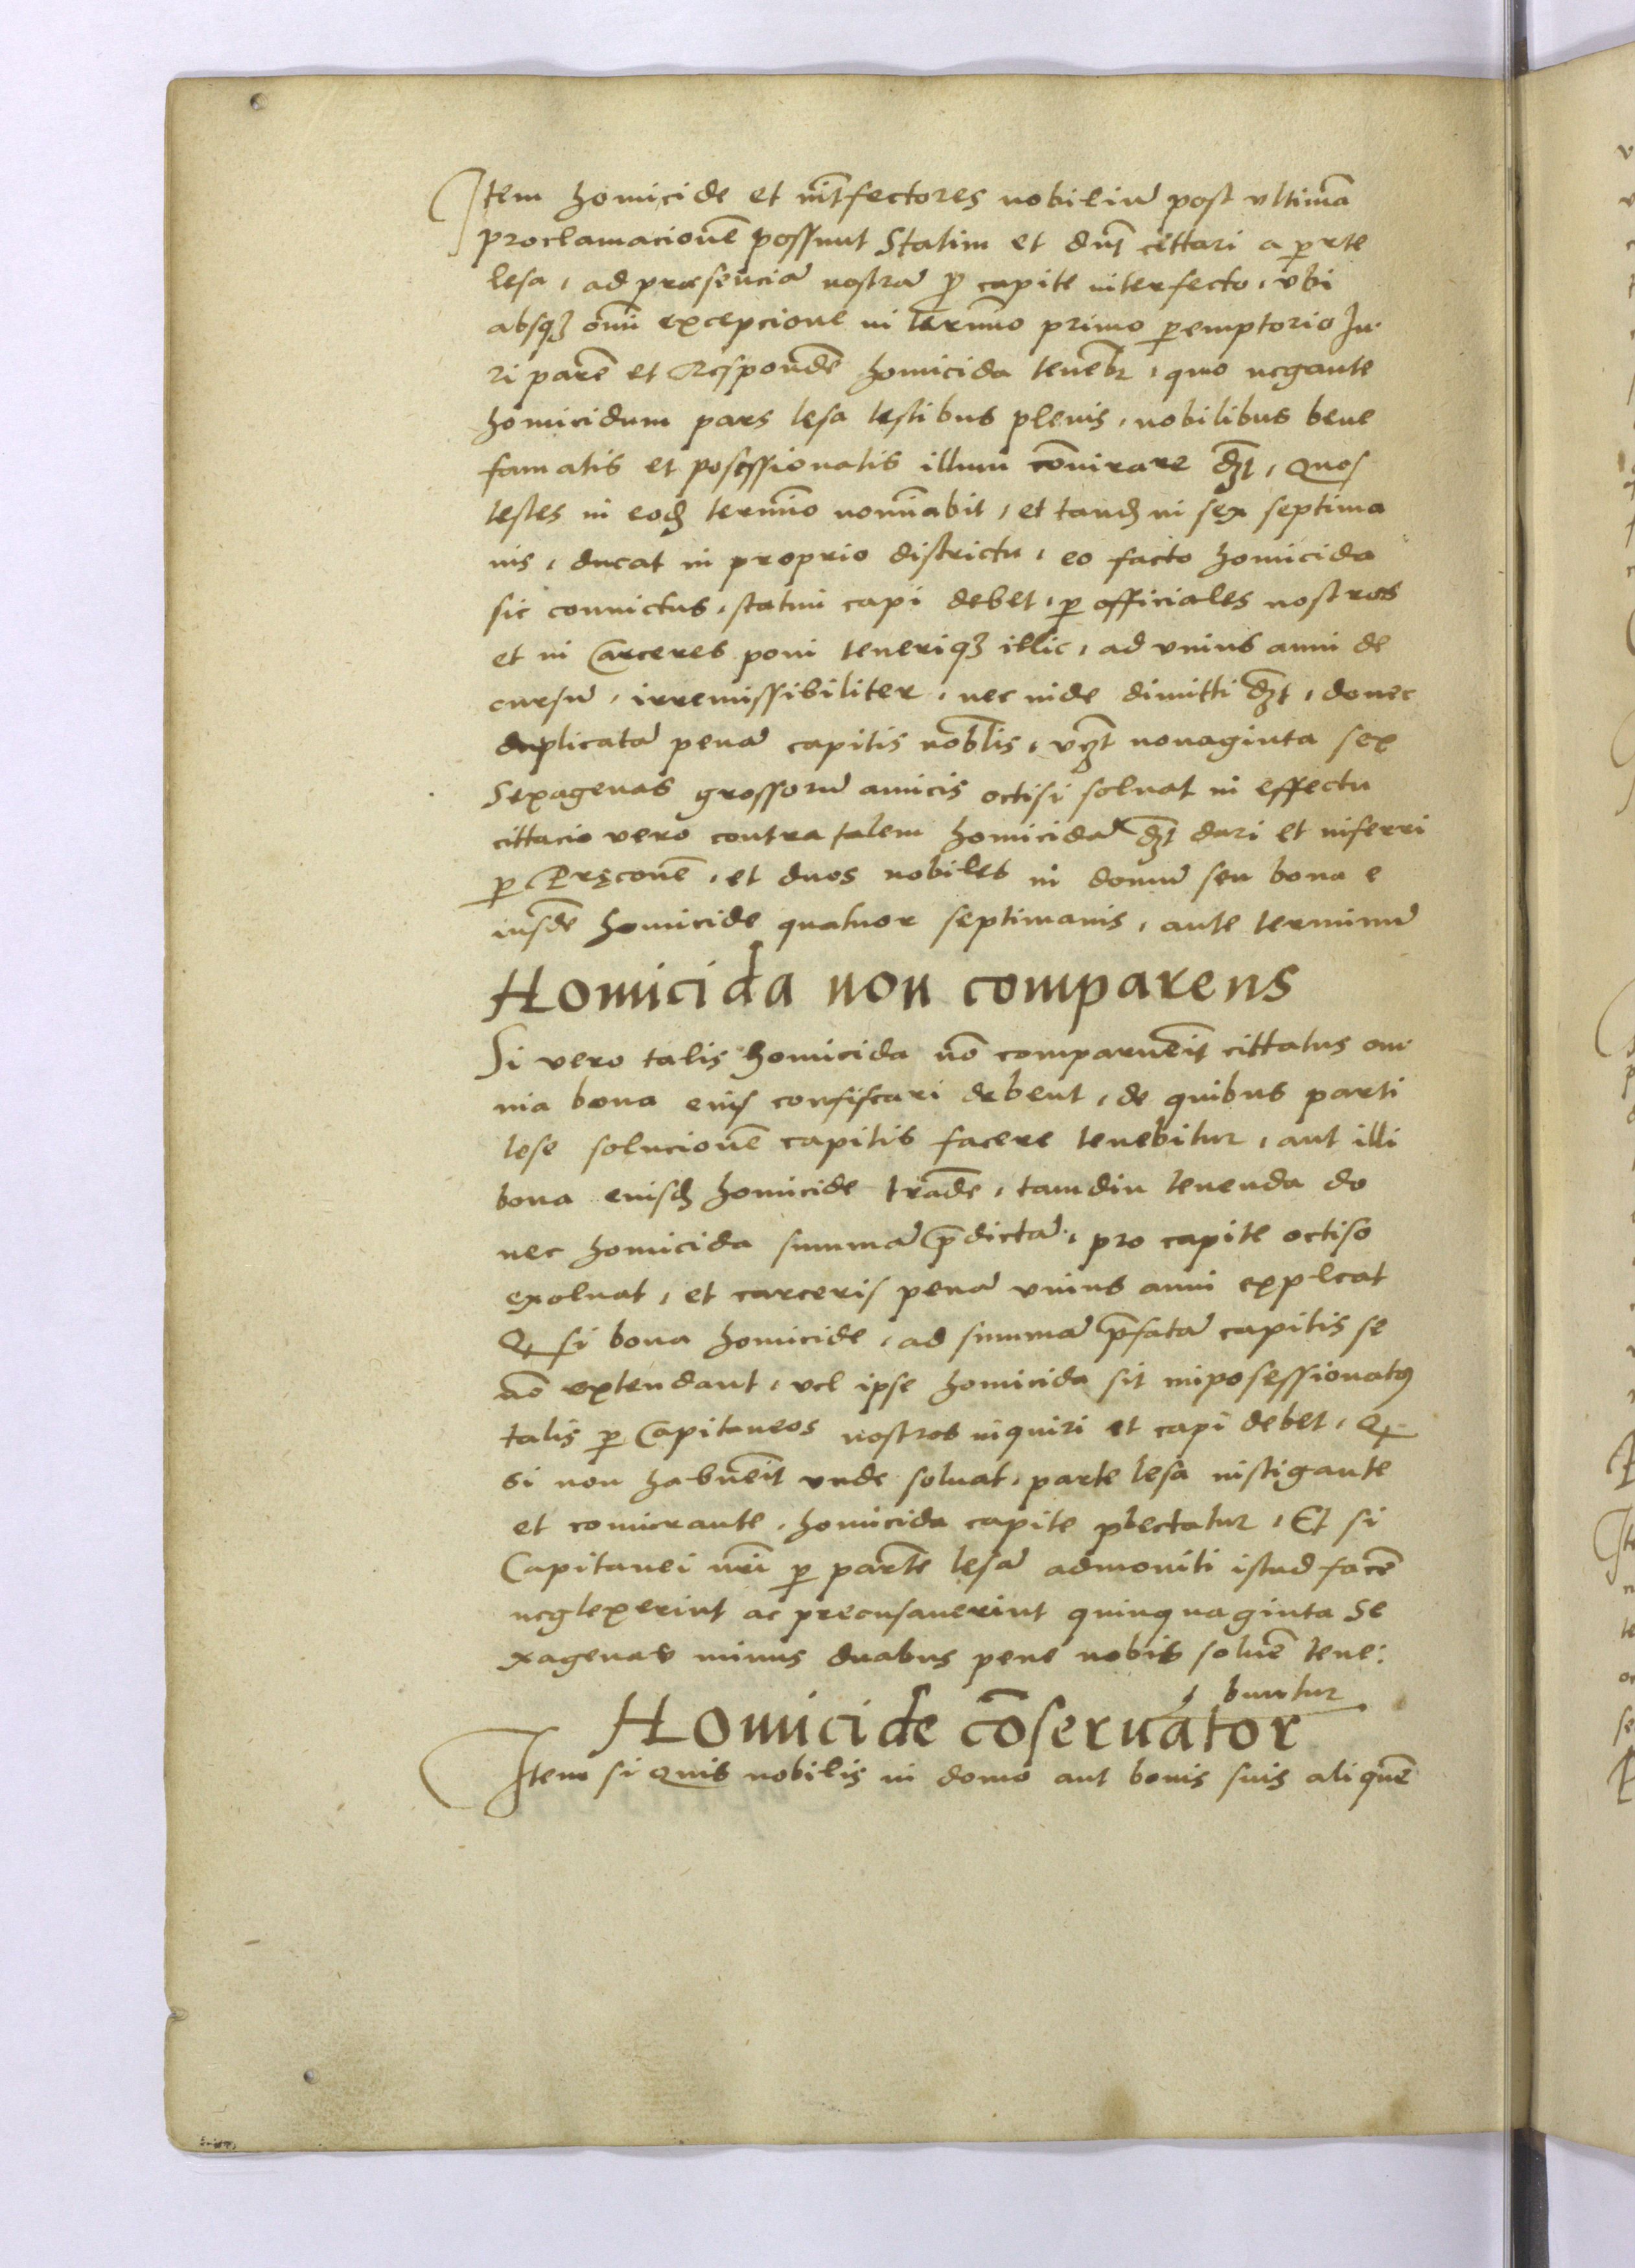 Item homicide et int̄fectores nobiliū post vltimā
proclamacionē possunt Statim et dn̄t cittari a ꝑte
lesa, ad præsenciā nostrā ꝓ capite interfecto, vbi
absqꝫ om̄i excepcione in term̄no primo ꝑemptorio Ju-
ri parē et Respondē homicida tenebr̄, quo negante
homicidum pars lesa testibus plenis, nobilibus bene
famatis et posessionatis illum cōvirare dꝫt, Quos
testes in eodꝫ term̄no nomīabit, et tandꝫ in sex septima
nis, ducat in proprio districtu, eo facto homicida
sic conuictus, statim capi debet, ꝑ officiales nostros
et in Carceres poni teneriqꝫ illic, ad vnius anni de
cursū, irremissibiliter, nec inde dimitti dꝫt, donec
duplicatā penā capitis nobīlis, vꝫt nonaginta sex
Sexagenas grossorū amicis octisi soluat in effectu
cittacio vero contra talem homicidā dꝫt dari et inferri
ꝑ Pręconē, et duos nobiles in domū seu bona e
iusdē homicide quatuor septimanis, ante terminū
Homicida non comparens
Si vero talis homicida nō comparuēit cittatus om-
nia bona eius confiscari debent, de quibus parti
lese solucionē capitis facere tenebitur, aut illi
bona eiusdꝫ homicide tradē, tamdiu tenenda do
nec homicida summā p̄dictā, pro capite octiso
exoluat, et carceris penā vnius anni expleat
Qꝫ si bona homicide, ad summā p̄fatā capitis se
nō extendant, vel ipse homicida sit inposessionatꝰ
talis ꝑ Capitaneos nostros inquiri et capi debet, Qꝫ
si non habuēit vnde soluat, parte lesa instigante
et comicrante, homicida capite plectatur, Et si
Capitanei nr̄i ꝑ partē lesā admoniti istud facē
neglexerint ac precusauerint quinquaginta Se
xagenas minus duabus pene nobis soluē tene:
buntur
Homicide cōseruator
Item si Quis nobilis in domo aut bonis suis aliquē